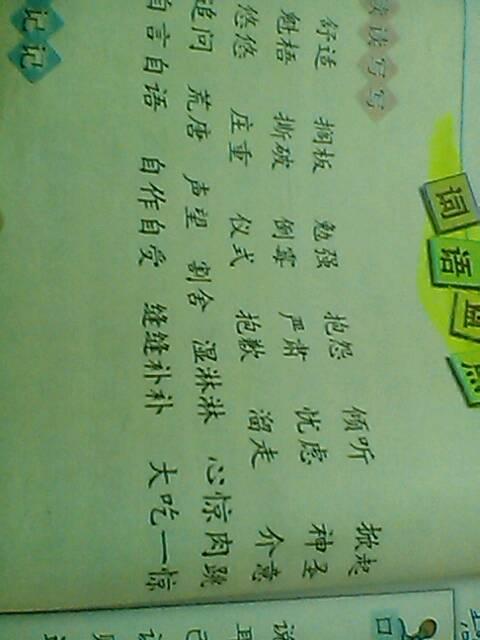 词语盘点
读读写写
舒适 搁板 勉强 抱怨 倾听 掀起
魁梧 撕破 倒霉 严肃 忧虑 神圣
悠悠 庄重 仪式 抱歉 溜走 介意
追问 荒唐 声望 割舍 湿淋淋 心惊肉跳
自言自语 自作自受 缝缝补补 大吃一惊
记记
口